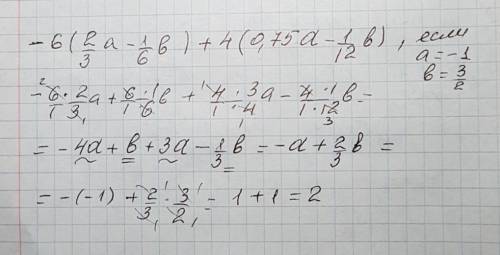 -6(2/3 a - 1/6 b) + 4(0,75a - 1/12 b), если a = -1 b = 3/2
-6/1 · 2/3 a + 6/1 · 1/6 b + 4/1 · 3/4 a - 4·1/1·12 b =
= -4a + b + 3a - 1/3 b = -a + 2/3 b =
= -(-1) + 2/3 · 3/2 = 1 + 1 = 2